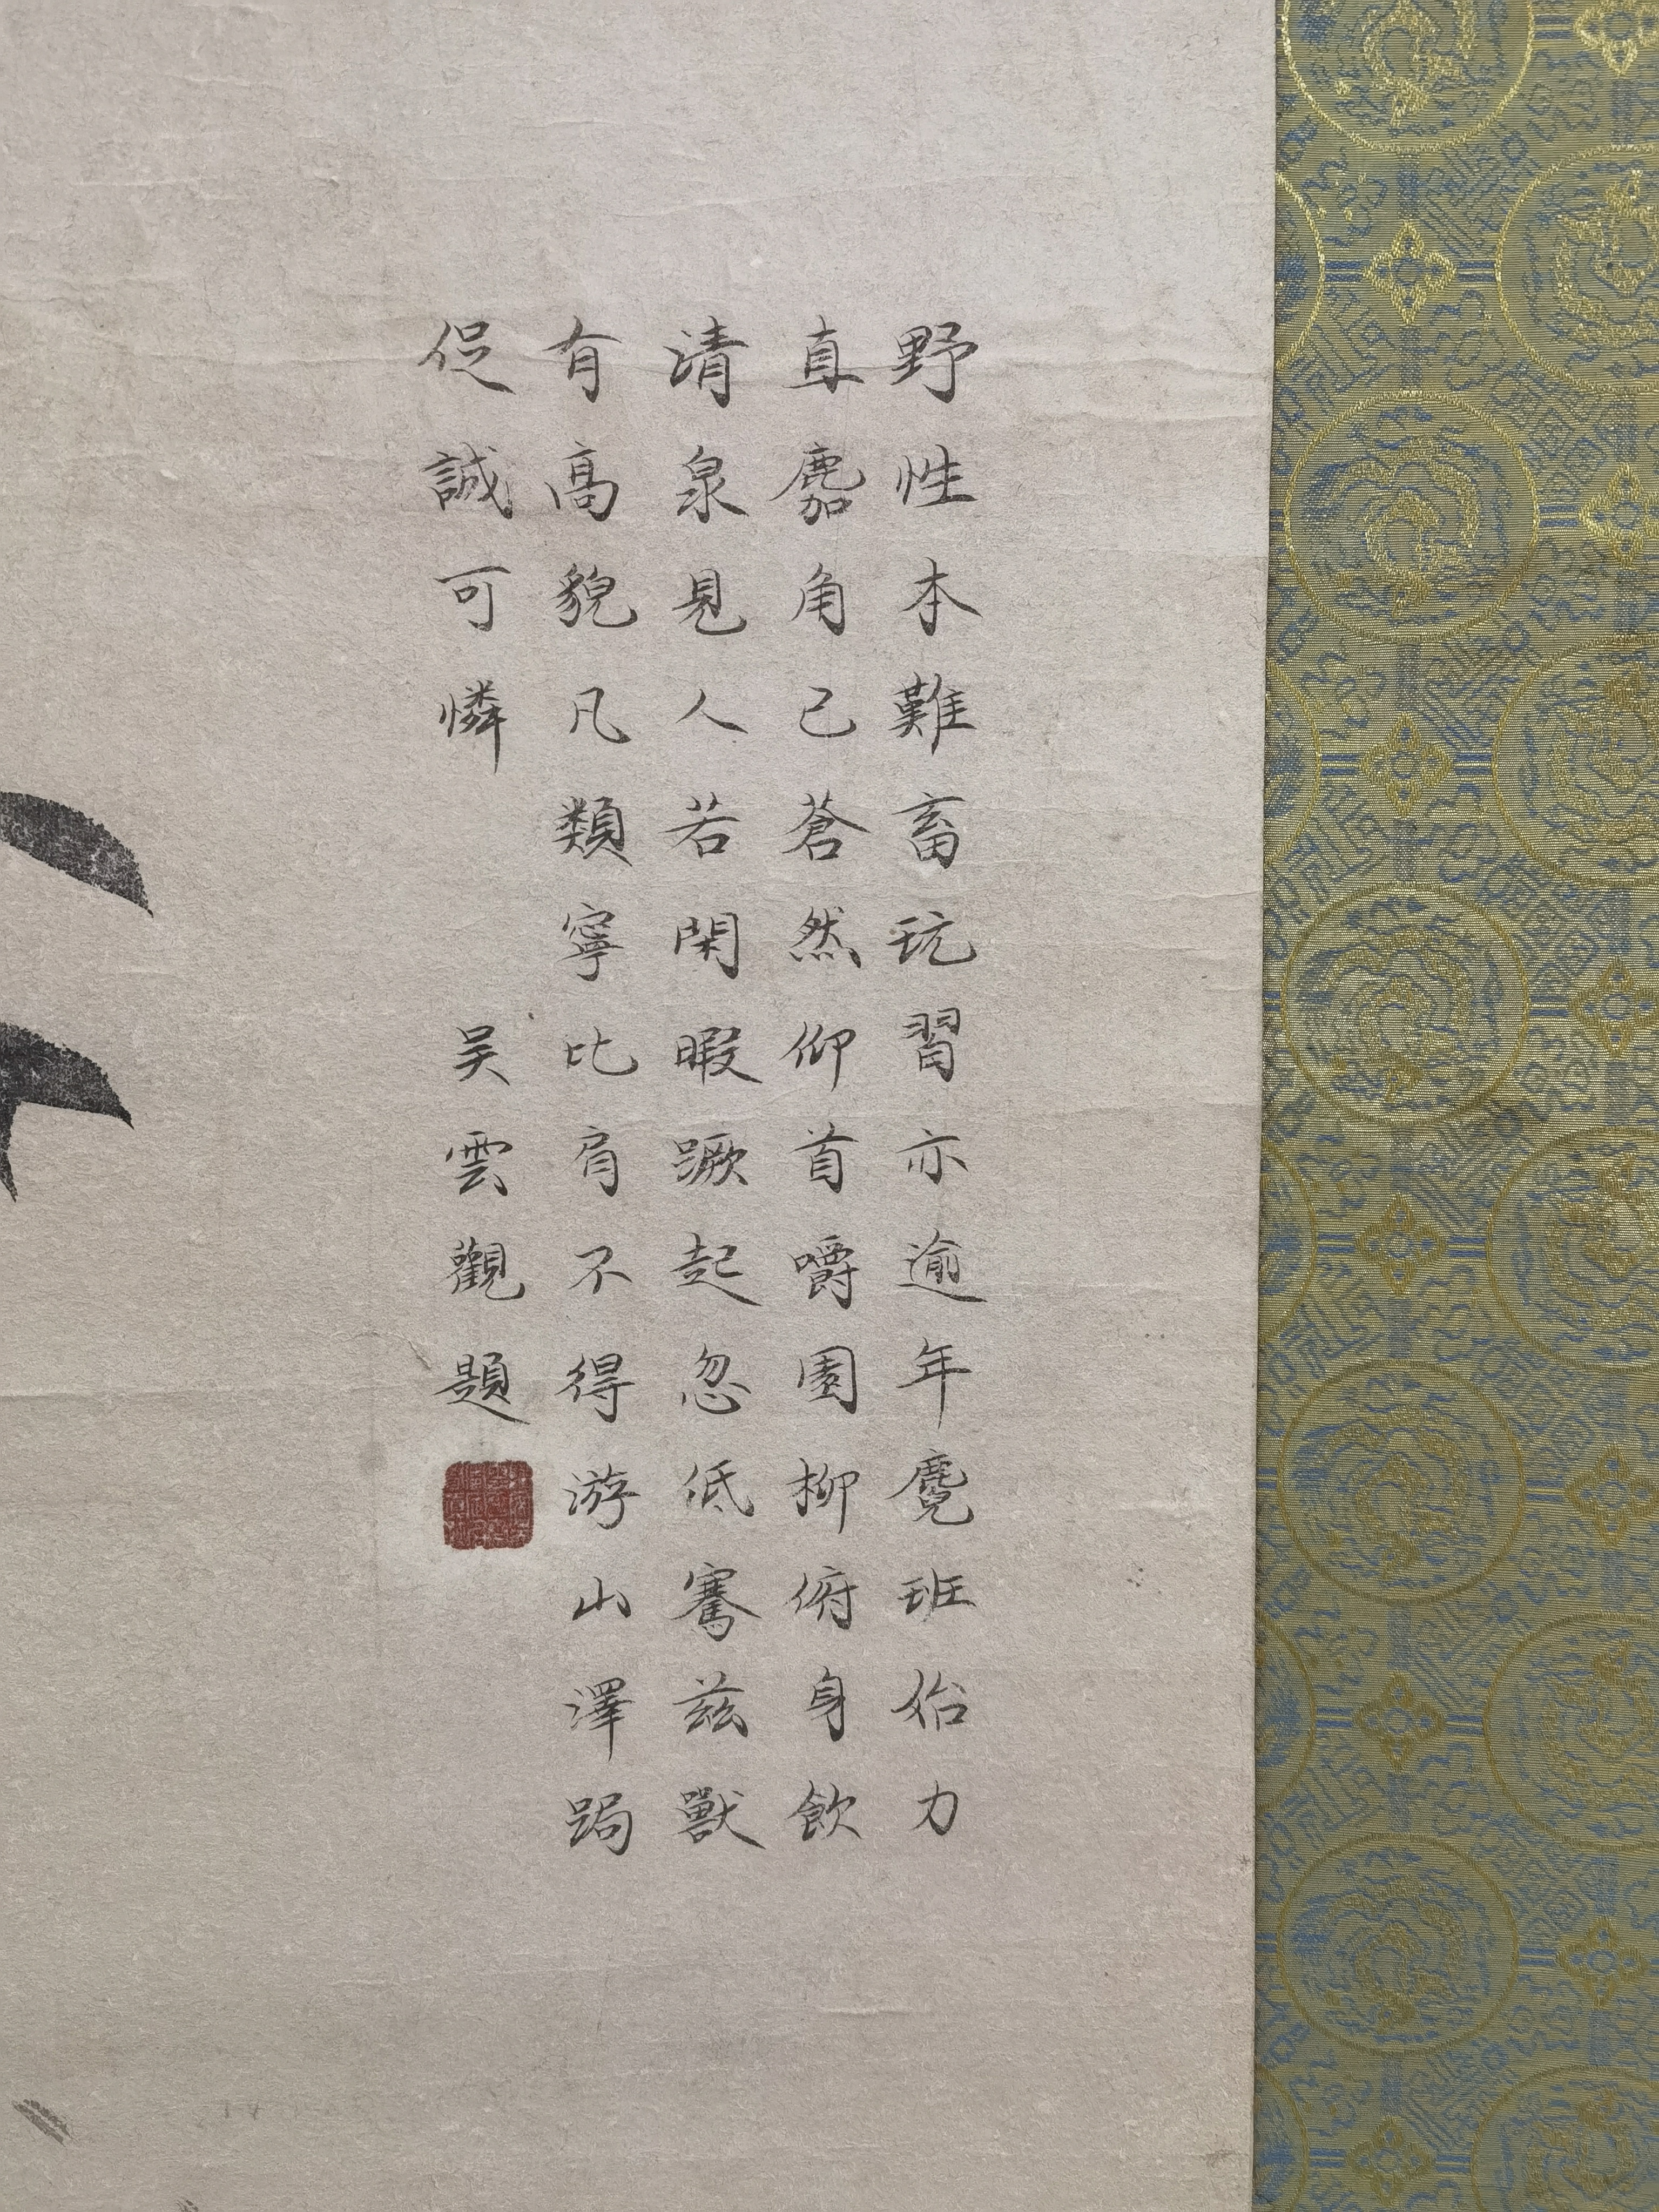 野性本難畜玩習亦逾年麑班始力
直麚角已蒼然仰首嚼園柳俯身飲
清泉見人若閑暇蹶起忽低騫茲獸
有高貌凡類寧比肩不得游山澤跼
促誠可憐　吴雲觀題